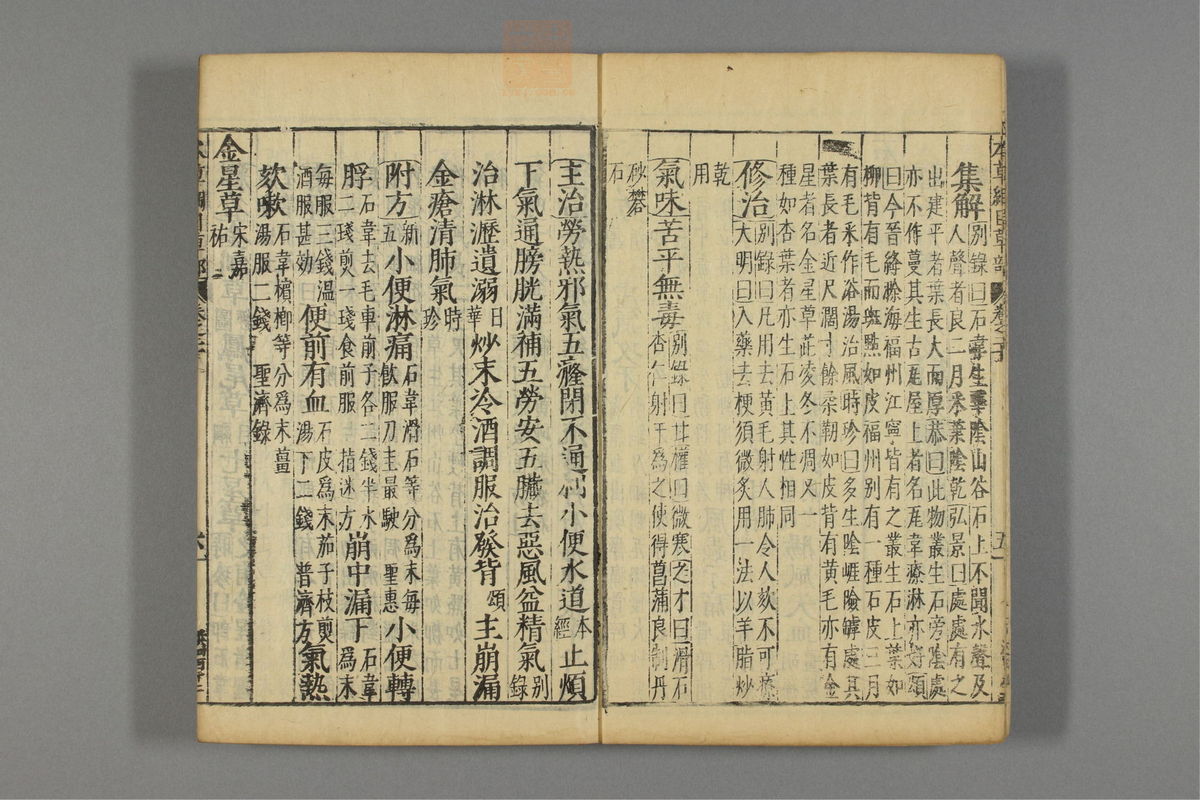 本草綱目草部
集解別錄曰石韋生華陰山谷石上不聞水聲及
人聲者良二月采葉陰乾弘景曰處處有之
出建平者葉長大而厚恭曰此物叢生石旁陰處
亦不作蔓其生古瓦屋上者名瓦韋療淋亦好頌
曰今晉絳滁海福州江寧皆有之叢生石上葉如
柳背有毛而斑點如皮福州別有一種石皮三月
有毛采作浴湯治風時珍曰多生陰崖險罅處其
葉長者近尺闊寸餘柔韌如皮背有黃毛亦有金
星者名金星草葉凌冬不凋又一
種如杏葉者亦生石上其性相同
修治別錄曰凡用去黃毛射人肺令人欬不可療
大明曰入藥去梗須微炙用一法以羊脂炒
乾
用
氣味苦平無毒別錄曰甘權曰微寒之才曰滑石
杏仁射干爲之使得菖蒲良制丹
砂礬
石
主治勞熱邪氣五癃閉不通利小便水道本經止煩
下氣通膀胱滿補五勞安五臟去惡風益精氣別錄
治淋瀝遺溺日華炒末冷酒調服治發背頌主崩漏
金瘡清肺氣時珍
附方新五小便淋痛石韋滑石等分爲末每
飲服刀圭最駛聖惠小便轉
脬石韋去毛車前子各二錢半水
二琖煎一琖食前服指迷方崩中漏下石韋爲末
每服三錢溫
酒服甚効便前有血石皮爲末茄子枝煎
湯下二錢普濟方氣熱
欬嗽石韋檳榔等分爲末薑
湯服二錢聖濟錄
金星草宋嘉祐